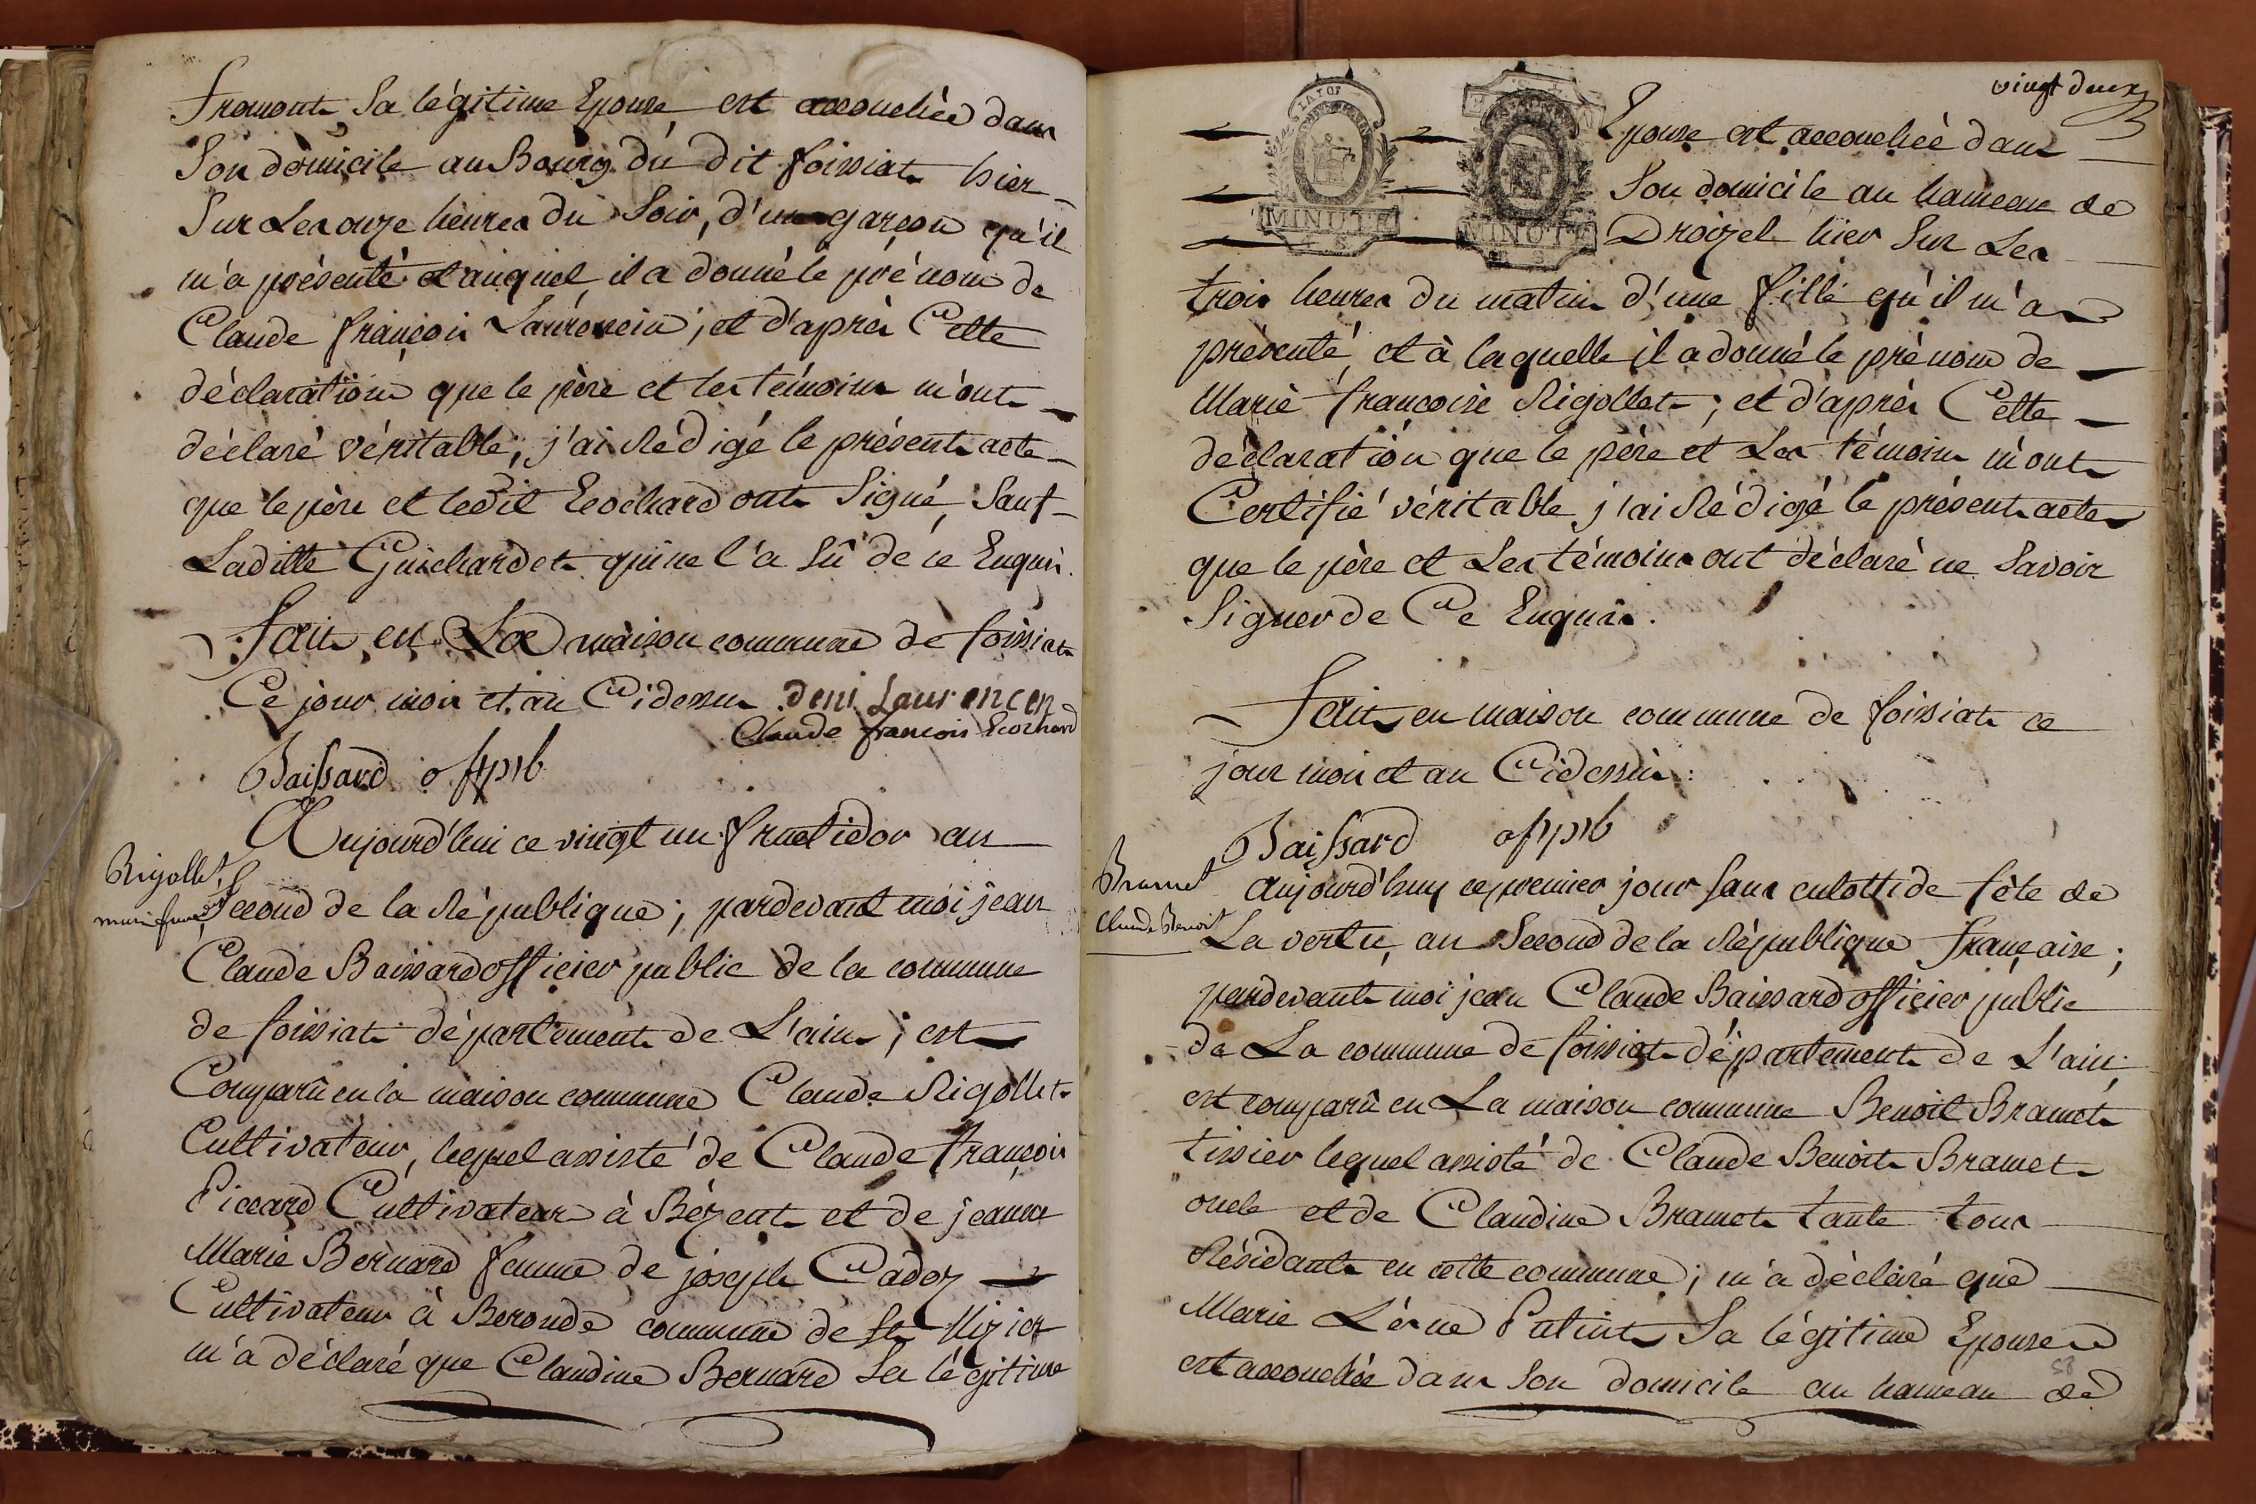 fromont Sa légitime Epouse est accouchée dans
Son domicile au Bourg du dit foissiat hier
Sur Les onze heures du Soir, d'un garçon qu'il
m'a présenté et auquel il a donné le prénom de
Claude françois Laurencin ; et d'après Cette
déclaration que le père et les témoins m'ont
déclaré véritable ; j'ai Rédigé le présent acte
que le père et ledit Ecochard ont Signé, Sauf
Laditte Guichardet qui ne l'a Sû de ce Enquis.
Fait en La maison commune de foissiat
Ce jour mois et an Cidessus deni Laurencen
Claude francois Ecochard
Baissard offpb
Aujourd'hui ce vingt un fructidor an
Rigollet
Second de la République ; pardevant moi jean
Claude Baissard officier public de la commune
de foissiat département de L'ain ; est
Comparû en la maison commune Claude Rigollet
Cultivateur, lequel assisté de Claude françois
Piccard Cultivateur à Bézent et de jeanne
Marie Bernard femme de joseph Cadoz
Cultivateur à Beronde commune de St Nizier
m'a déclaré que Claudine Bernard Sa légitime
vingt deux
LA LOI
MINUTE
MINUTE
Epouse est accouchée dans
Son domicile au hameau de
Droizel hier Sur Les
trois heures du matin d'une fille qu'il m'a
présenté, et à laquelle il a donné le prénom de
Marie françoise Rigollet ; et d'après Cette
déclaration que le père et Les témoins m'ont
Certifié véritable j'ai Rédigé le présent acte
que le père et Les témoins ont déclaré ne Savoir
Signer de Ce Enquis.
Fait en maison commune de foissiat ce
jour mois et an Cidessus
Baissard offpb
Bramet
Claude Benoit
Aujourd'huy ce premier jour Sans culottide fête de
La vertu, an Second de la République française ;
pardevant moi jean Claude Baissard officier public
de La commune de foissiat département de L'ain
est comparû en La maison commune Benoit Bramet
tissier lequel assisté de Claude Benoit Bramet
oncle et de Claudine Bramet tante tous
Résidants en cette commune ; m'a déclaré que
Marie Sa légitime Epouse
est accouchée dans Son domicile au hameau de
58